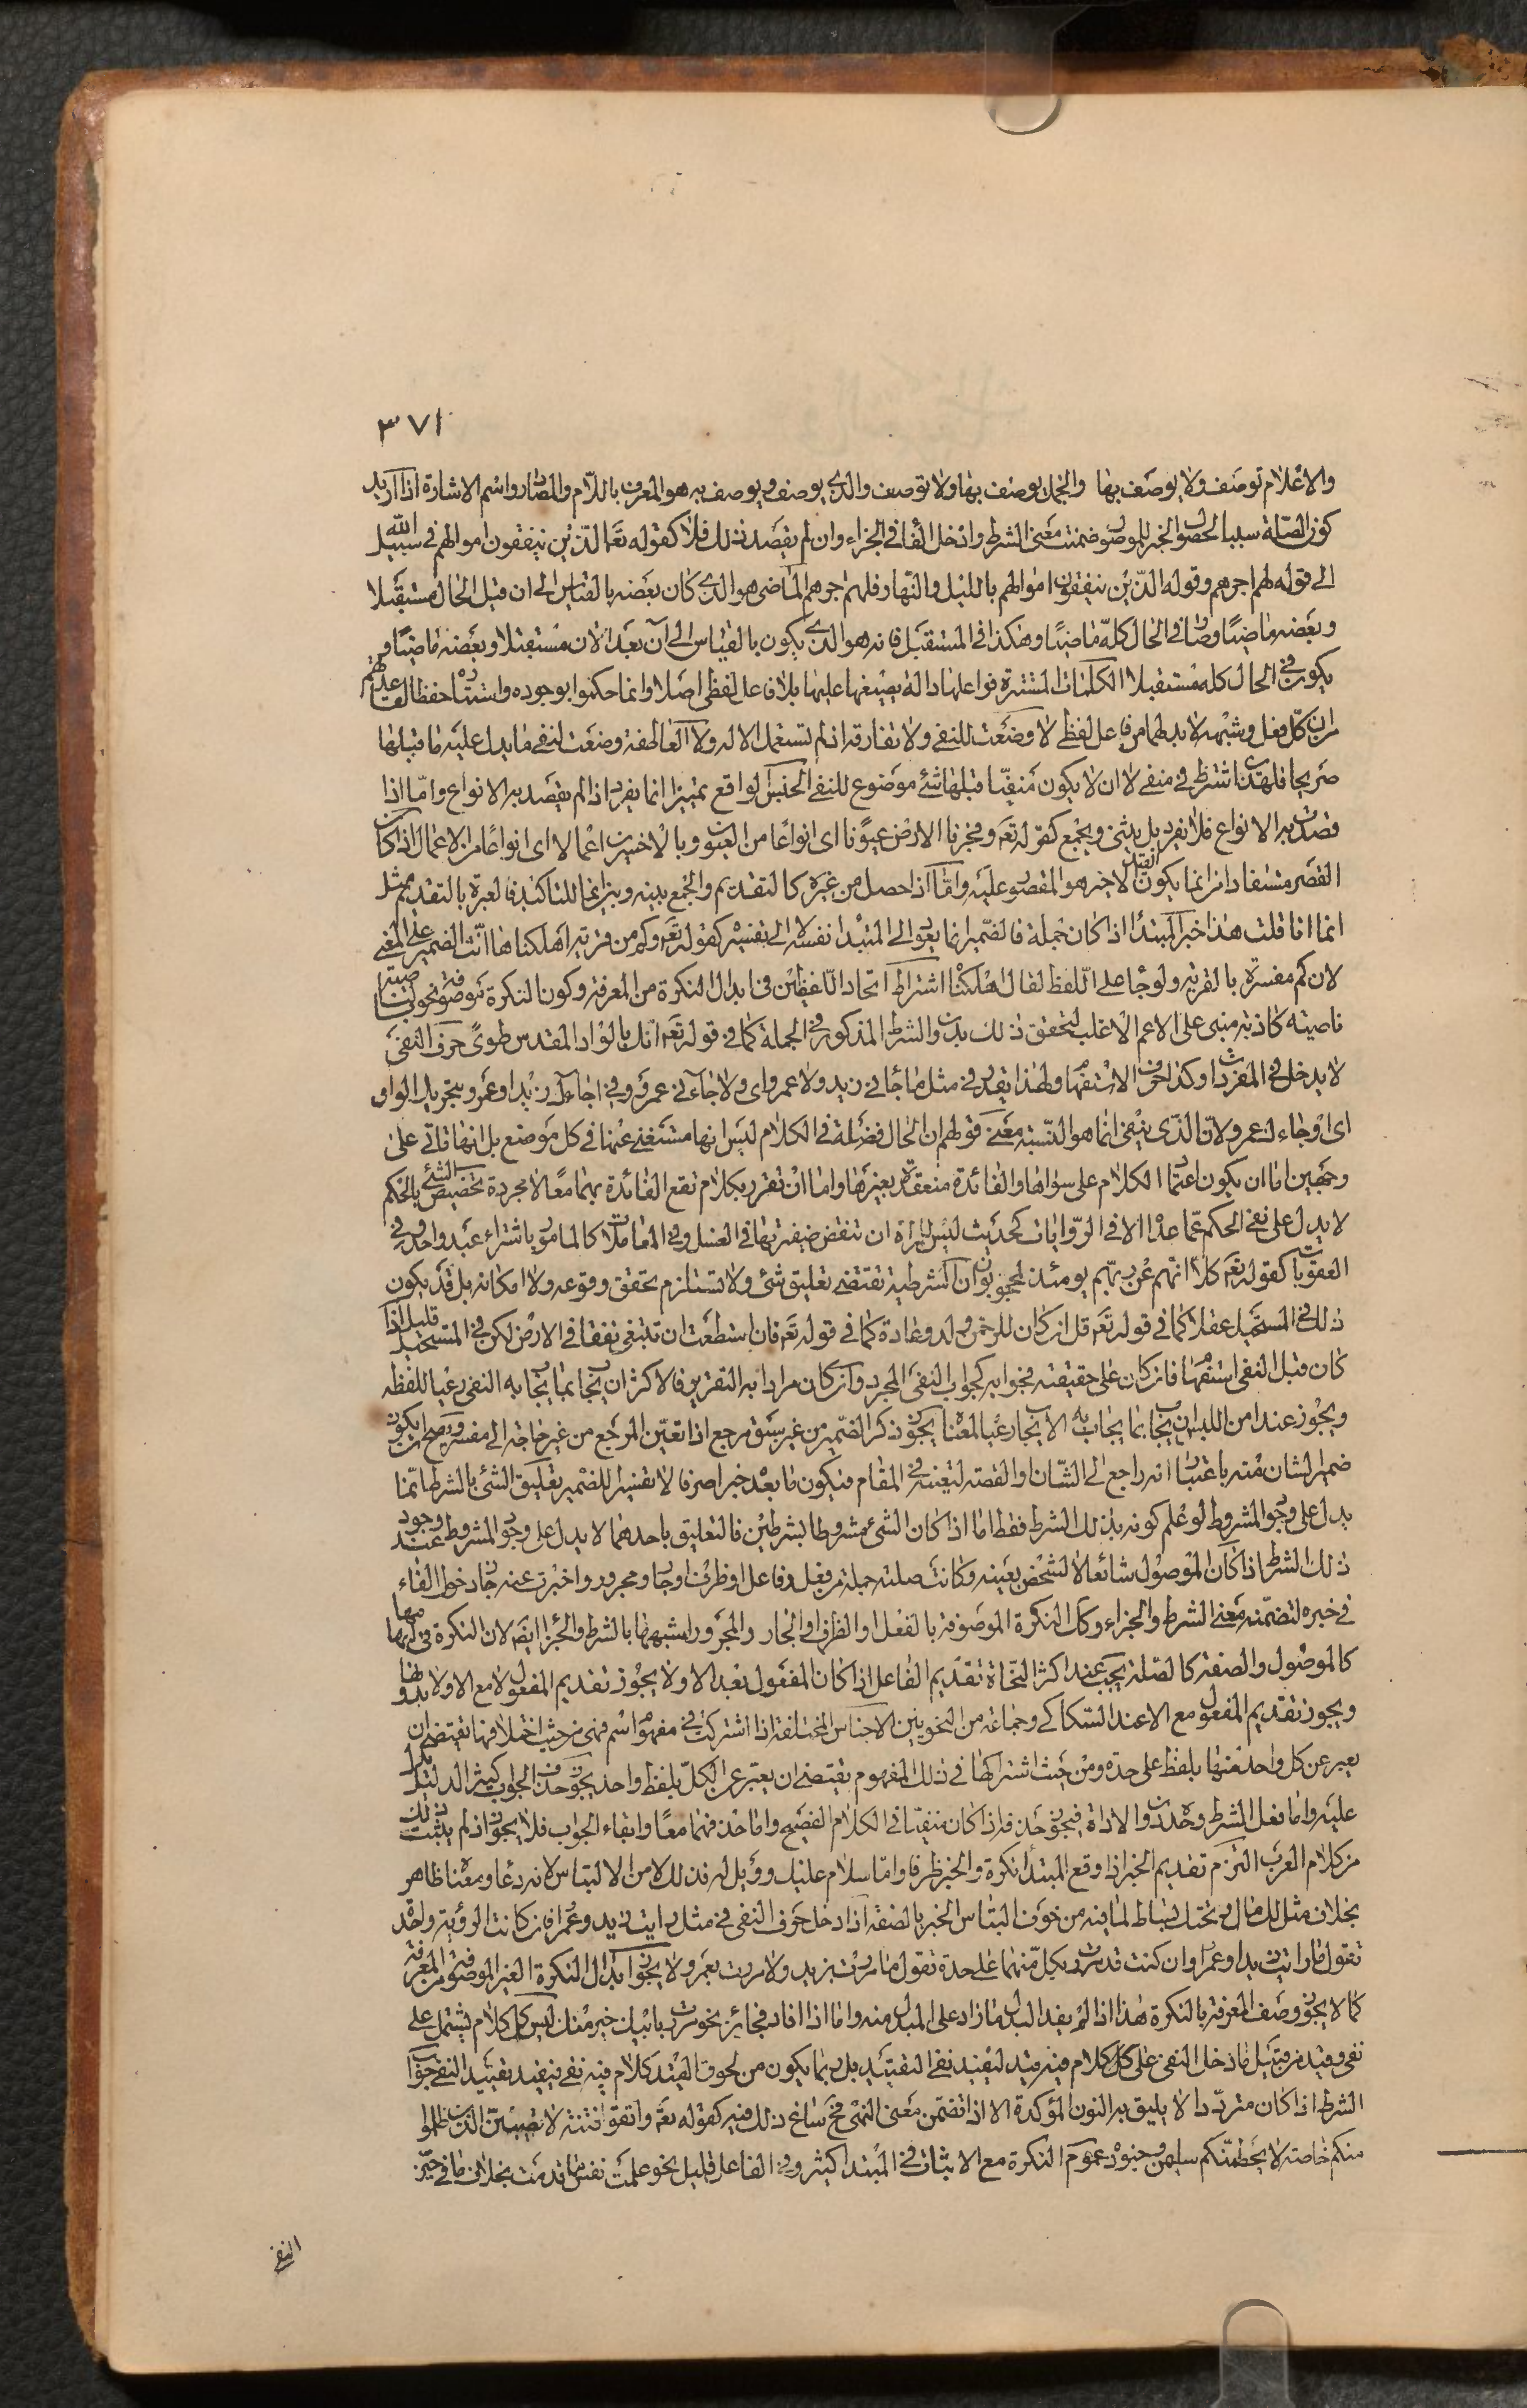 ٣٧١
والاعلام توصف ولا يوصف بها والجمل يوصف بها ولا توصف والذي يوصف ويوصف به هو المعرف باللام والمضاف واسم الاشارة اذا اريد
كون الصلة سببا لحصول الخبر للموصول ضمنت معنى الشرط وادخل الفا في الجزاء وان لم يقصد ذلك فلا كقوله تعالى الذين ينفقون اموالهم في سبيل الله
الى قوله لهم اجرهم وقوله الذين ينفقون اموالهم بالليل والنهار فلهم اجرهم الماضى هو الذي كان بعضه بالقياس الى ان قبل الحال مستقبلا
وبعضه ماضيا وصار في الحال كله ماضيا وهكذا في المستقبل فانه هو الذي يكون بالقياس الى آن بعد الان مستقبلا وبعضه ماضيا و
يكون في الحال كله مستقبلا الكلمات المستترة فواعلها دالة بصيغها عليها بلا فاعل لفظى اصلا وانما حكموا بوجوده واستتاره حفظا لقاعدتهم
من ان كل فعل وشبهه لا بد لهما من فاعل لفظي لا وضعت للنفى ولا تفارقه اذ لم تستعمل الا له ولا العاطفة وضعت لنفى ما يدل عليه ما قبلها
صريحا فلهذا اشترط في منفى لا ان لا يكون منفيا قبلها شئ موضوع للنفى الجنس الواقع تميزا انما يفرد اذا لم يقصد به الانواع واما اذا
قصدت به الانواع فلا يفرد بل يثنى ويجمع كقوله تعه وفجرنا الارض عيونا اى انواعا من العيون وبالاخسرين اعمالا اى انواعا من الاعمال اذا كان
القصر مستفادا من انما يكون القيد الاخير هو المقصور عليه واما اذا حصل من غيره كالتقديم والجمع بينه وبين انما للتاكيد فالعبرة بالتقديم مثل
انما انا قلت هذا خبر المبتدأ اذا كان جملة فالضمير انما يعود الى المبتدا نفسه لا الى تفسيره كقوله تعه وكم من قرية اهلكناها انث الضمير على المعنى
لان كم مفسرة بالقرية ولو جاء على اللفظ لقال اهلكنا اشتراط اتحاد اللفظين في ابدال النكرة من المعرفة وكون النكرة موصوفة نحو بالناصية
ناصية كاذبة مبنى على الاعم الاغلب لتحقق ذلك بدون الشرط المذكور في الجملة كما في قوله تعه انك بالواد المقدس طوىً حرف النفى
لا يدخل في المفردات وكذا حرف الاستفهام ولهذا يقدر في مثل ما جاءني زيد ولا عمرو اى ولا جاءنى عمرو وفي اجاءك زيد او عمرو بتحريك الواو
اى اوجاءك عمرو لان الذى ينفى انما هو النسبة معنى قولهم ان الحال فضلة في الكلام ليس انها مستغنى عنها في كل موضع بل انها تاتى على
وجهين اما ان يكون اعتماد الكلام على سواها والفائدة منعقدة بغيرها واما ان تقترن بكلام تقع الفائدة بهما معا لا مجردة تخصيص الشئ بالحكم
لا يدل على نفى الحكم عما عداه الا في الروايات كحديث ليس للمرأة ان تنقض ضفيرتها في الغسل وفي المعاملات كالمامور باشتراء عبد واحد وفي
العقوبات كقوله تعه كلا انهم عن ربهم يومئذ لمحجوبون ان الشرطية تقتضى تعليق شئ ولا تستلزم تحقق وقوعه ولا امكانه بل قد يكون
ذلك في المستحيل عقلا كما في قوله تعه قل ان كان للرحمن ولد وعادة كما في قوله تعه فان استطعت ان تبتغى نفقا في الارض لكن في المستحيل قليل اذا
كان قبل النفى استفهام فان كان على حقيقته فجوابه كجواب النفى المجرد وان كان مرادا به التقرير فالاكثر ان يجاب بما يجاب به النفى رعيا للفظه
ويجوز عند امن اللبس ان يجاب بما يجاب به الايجاب رعيا لمعناه يجوز ذكر الضمير من غير سبق مرجع اذا تعين المرجع من غير حاجة الى مفسر ويصح ان يكون
ضمير الشان منه باعتبار انه راجع الى الشان والقصة لتعينه في المقام فيكون ما بعد خبرا صرفا لا تفسيرا للضمير تعليق الشئ بالشرط انما
يدل على وجود المشروط لو علم كونه بذلك الشرط فقط اما اذا كان الشئ مشروطا بشرطين فالتعليق باحدهما لا يدل على وجود المشروط عند وجود
ذلك الشرط اذا كان الموصول شائعا لا لشخص بعينه وكانت صلته جملة من فعل وفاعل او ظرف او جار ومجرور واخبرت عنه جاز دخول الفاء
في خبره لتضمنه معنى الشرط والجزاء وكذا النكرة الموصوفة بالفعل او الظرف او الجار والمجرور لشبهها بالشرط والجزاء ايضا لان النكرة في ابهامها
كالموصول والصفة كالصلة يجب عند اكثر النحاة تقديم الفاعل اذا كان المفعول بعد الا ولا يجوز تقديم المفعول لا مع الا ولا بدونها
ويجوز تقديم المفعول مع الا عند السكاكى وجماعة من النحويين الاجناس المختلفة اذا اشتركت في مفهوم اسم فهى من حيث اختلافها تقتضى ان
يعبر عن كل واحد منها بلفظ على حدة ومن حيث اشتراكها في ذلك المفهوم يقتضى ان يعبر عن الكل بلفظ واحد يجوز حذف الجواب كثيرا لدليل يدل
عليه واما فعل الشرط وحده دون الاداة فيجوز حذفه اذا كان منفيا في الكلام الفصيح واما حذفهما معا وابقاء الجواب فلا يجوز اذ لم يثبت ذلك
من كلام العرب التزم تقديم الخبر اذا وقع المبتدا نكرة والخبر ظرفا واما سلام عليك وويل له فذلك لامن الالتباس لانه دعا ومعناه ظاهر
بخلاف مثل لك مال وتحتك بساط لما فيه من خوف التباس الخبر بالصفة اذا دخل حرف النفى في مثل رايت زيدا وعمرا فان كانت الرؤية واحدة
تقول ما رايت زيدا وعمرا وان كنت قد مررت بكل منهما على حدة تقول ما مررت بزيد ولا مررت بعمرو لا يجوز ابدال النكرة الغير الموصوفة من المعرفة
كما لا يجوز وصف المعرفة بالنكرة هذا اذا لم يفد البدل ما زاد على المبدل منه واما اذا افاد فجائز نحو مررت بابيك خير منك ليس كل كلام يشتمل على
نفى وقيد من قبيل ما دخل النفى على كل كلام فيه قيد ليفيد نفى التقييد بل ربما يكون من لحوق القيد كلام فيه نفى فيفيد تقييد النفى جواب
الشرط اذا كان مترددا لا يليق به النون المؤكدة الا اذا تضمن معنى النهى فح ساغ ذلك فيه كقوله تعه واتقوا فتنة لا تصيبن الذين ظلموا
منكم خاصة لا يحطمنكم سليمن وجنوده عموم النكرة مع الاثبات في المبتدا كثير وفي الفاعل قليل نحو علمت نفس ما قدمت بخلاف ما في حيز
النفى